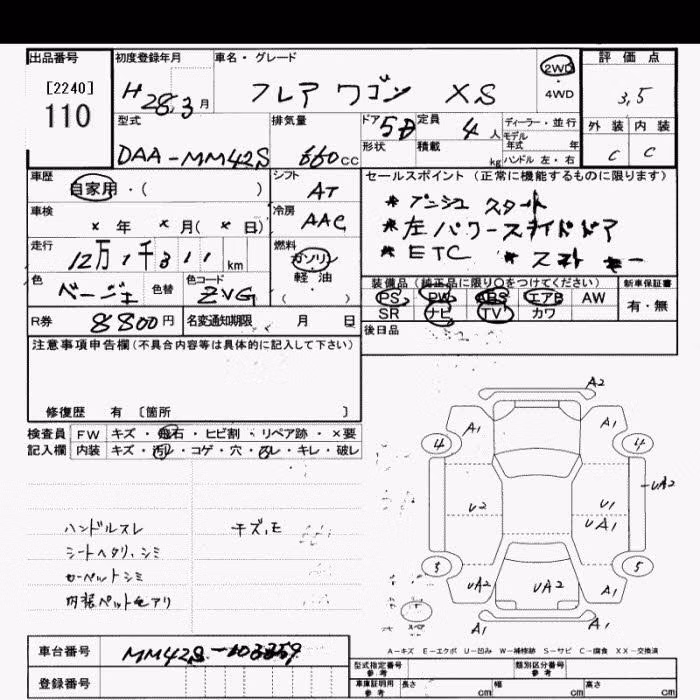 出品番号 初度登録年月 車名・グレード 2WD 評価点
[2240] H 28.3月 フレア ワゴン XS 4WD 3.5
110
型式 排気量 ドア 5D 定員 4人 ディーラー・並行 外装 内装
形状 積載 kg モデル年式 年
DAA-MM42S 660CC ハンドル左・右 C C
車歴 シフト セールスポイント(正常に機能するものに限ります)
自家用・( ) AT *プッシュ スタート
車検 冷房 *左パワースライドドア
× 年 × 月( × 日) AAC *ETC *スマートキー
走行 燃料
12万1千311km ガソリン
軽油
( )
装備品(純正品に限り○をつけてください) 新車保証書
色 色替 色コード PS PW ABS エアB AW 有・無
ベージュ ZVG SR ナビ TV カワ
R券 8800円 名変通知期限 月 日 後日品
注意事項申告欄(不具合内容等は具体的に記入して下さい)
修復歴 有 〔箇所 〕
検査員 FW キズ・飛石・ヒビ割・リペア跡・×要
記入欄 内装 キズ・汚レ・コゲ・穴・スレ・キレ・破レ
A2
A1 A1
4 4
UA2
U2 U1
UA1
3 5
UA2 UA2 A1
A1 A1
ハンドルスレ キズ、モ
シートヘタリ、シミ
カーペットシミ
内張ペットモアリ
A-キズ E-エクボ U-凹み W-補修跡 S-サビ C-腐食 XX-交換済
車台番号 MM42S-103359 型式指定番号 参考 類別区分番号 参考
登録番号 車庫証明用 参考 長さ cm 幅 cm 高さ cm